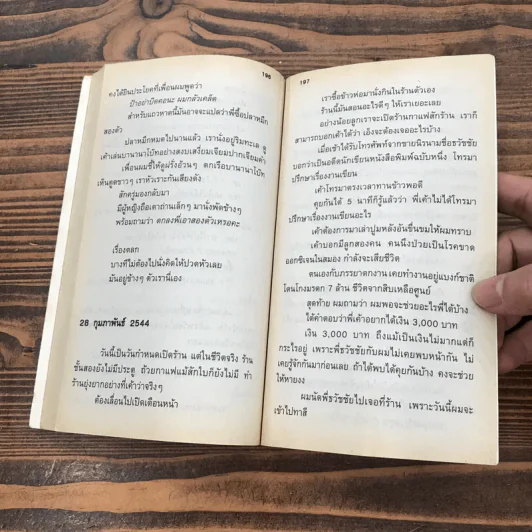 196
คงได้ยินประโยคที่เพื่อนผมพูดว่า
ป้าอย่าปิดคอนะ ผมกลัวเคล็ด
สำหรับแถวหาดนี้มันอาจจะแปลว่าพี่ซื้อปลาหมึก
สองตัว
ปลาหมึกหมดไปนานแล้ว เรานั่งอยู่ริมทะเล ดู
เค้าเล่นบานาน่าโบ๊ทอย่างสงบเสงี่ยมเจียมปากเจียมคำ
เพื่อนผมชี้ให้ดูฝรั่งอ้วนๆ ตกเรือบานาน่าโบ๊ท
เห็นตูดขาวๆ เราหัวเราะกันเสียงดัง
สักครู่มองกลับมา
มีผู้หญิงถือเตาถ่านเล็กๆ มานั่งพัดข้างๆ
พร้อมถามว่า ตกลงพี่เอาสองตัวเหรอคะ
เรื่องตลก
บางทีไม่ต้องไปนั่งคิดให้ปวดหัวเลย
มันอยู่ข้างๆ ตัวเรานี่เอง
28 กุมภาพันธ์ 2544
วันนี้เป็นวันกำหนดเปิดร้าน แต่ในชีวิตจริง ร้าน
ชั้นสองยังไม่มีประตู ถ้วยกาแฟแม้สักใบก็ยังไม่มี ทำ
ร้านยุ่งยากอย่างที่เค้าว่าจริงๆ
ต้องเลื่อนไปเปิดเดือนหน้า
197
เราซื้อข้าวห่อมานั่งกินในร้านตัวเอง
ร้านนี้มันสอนอะไรดีๆ ให้เราเยอะเลย
อย่างน้อยลูกเราจะเปิดร้านกาแฟสักร้าน เราก็
สามารถบอกเค้าได้ว่า เอ็งจะต้องเจออะไรบ้าง
เมื่อเช้าได้รับโทรศัพท์จากชายนิรนามชื่อธวัชชัย
บอกว่าเป็นอดีตนักเขียนหนังสือพิมพ์ฉบับหนึ่ง โทรมา
ปรึกษาเรื่องงานเขียน
เค้าโทรมาตรงเวลาทานข้าวพอดี
คุยกันได้ 5 นาทีก็รู้แล้วว่า พี่เค้าไม่ได้โทรมา
ปรึกษาเรื่องงานเขียนอะไร
เค้าต้องการมาเล่าปูมหลังอันขื่นขมให้ผมทราบ
เค้าบอกมีลูกสองคน คนนึงป่วยเป็นโรคขาด
ออกซิเจนในสมอง กำลังจะเสียชีวิต
ตนเองกับภรรยาตกงาน เคยทำงานอยู่แบงก์ชาติ
โดนโกงมรดก 7 ล้าน ชีวิตจากสิบเหลือศูนย์
สุดท้าย ผมถามว่า ผมพอจะช่วยอะไรพี่ได้บ้าง
ได้คำตอบว่าพี่เค้าอยากได้เงิน 3,000 บาท
เงิน 3,000 บาท ถึงแม้เป็นเงินไม่มากแต่ก็
กระไรอยู่ เพราะพี่ธวัชชัยกับผมไม่เคยพบหน้ากัน ไม่
เคยรู้จักกันมาก่อนเลย ถ้าได้พบได้คุยกันบ้าง คงจะช่วย
ให้หายงง
ผมนัดพี่ธวัชชัยไปเจอที่ร้าน เพราะวันนี้ผมจะ
เข้าไปทาสี